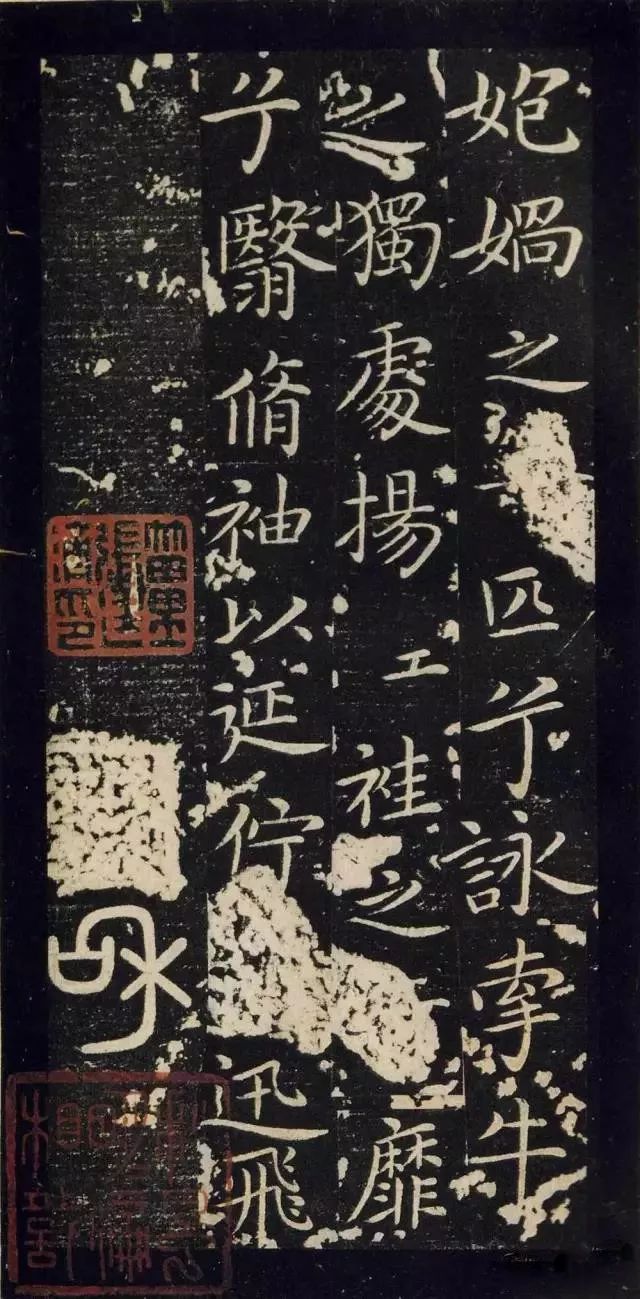 㚿媧之匹兮詠牽牛
之獨處揚袿之靡
兮翳脩袖以延佇迅飛
和